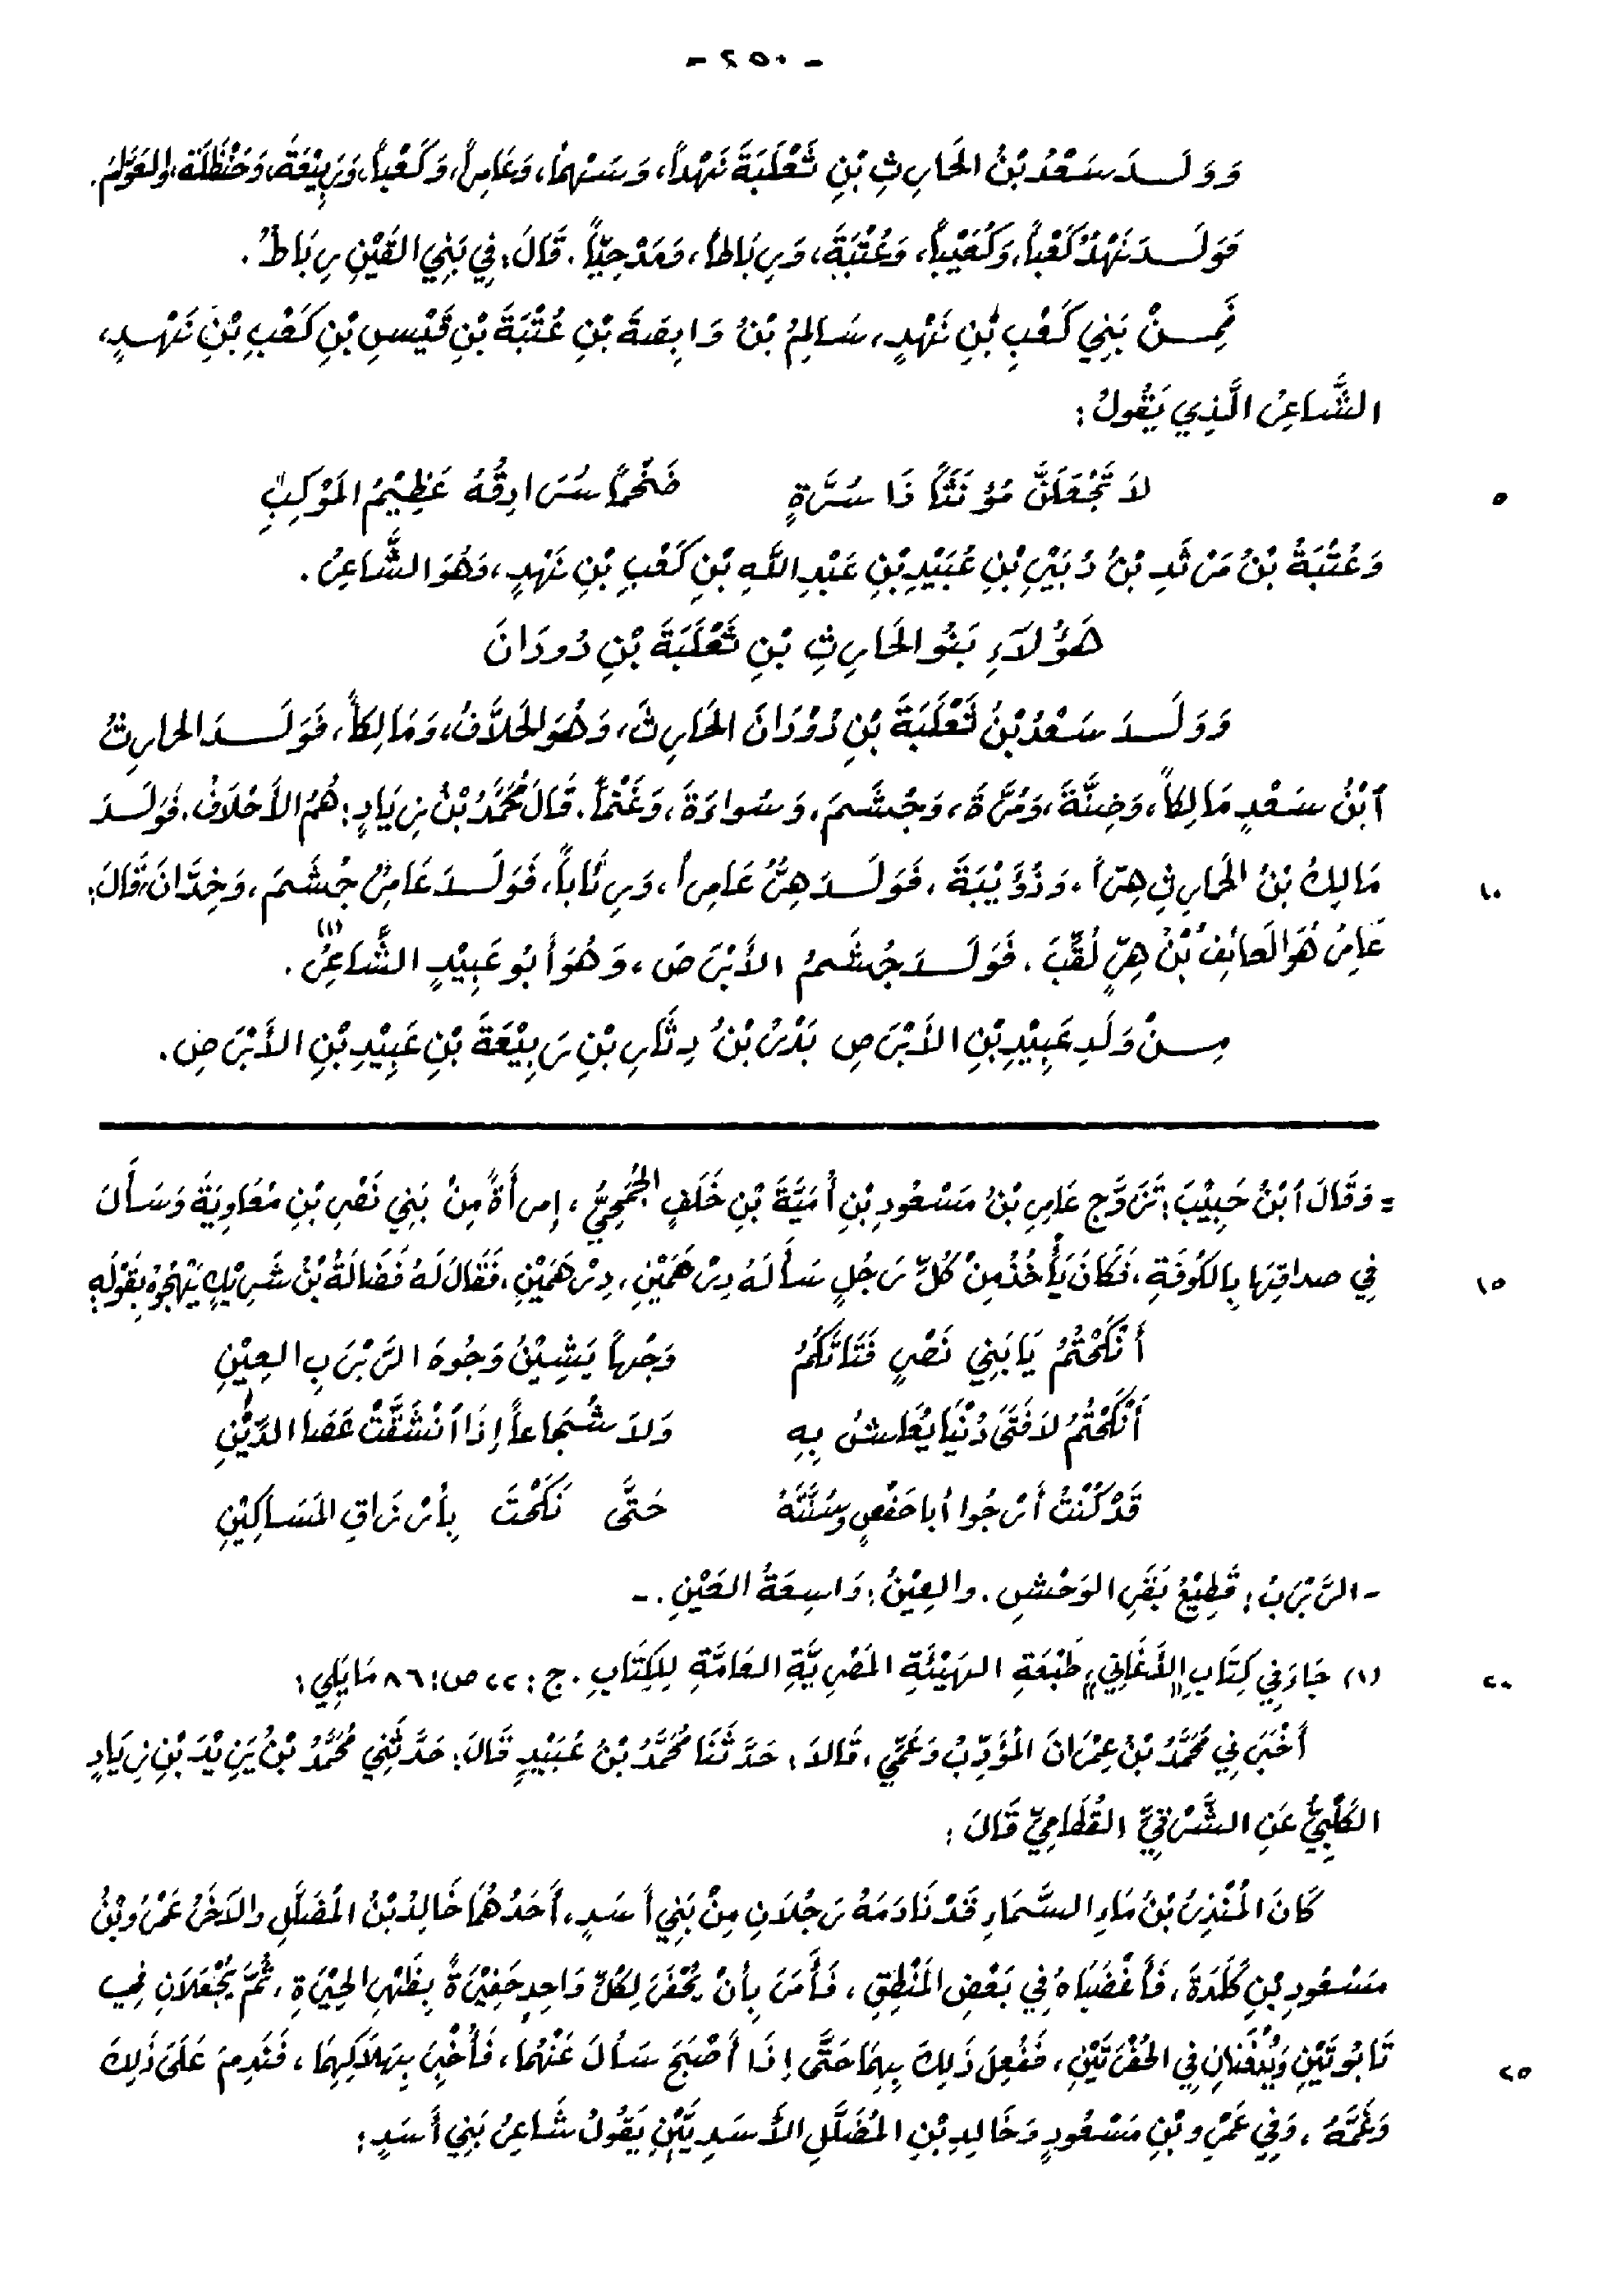 - ٢٥٠ -
وَوَلَدَ سَعْدُ بْنُ الحَارِثِ بْنِ ثَعْلَبَةَ نَهْداً، وَسَهْماً، وَعَامِراً، وَكَعْباً، وَرَبِيْعَةَ، وَحَنْظَلَةَ، والعَوَّامَ.
فَوَلَدَ نَهْدٌ كَعْباً، وَكُعَيْباً، وَعُتْبَةَ، وَرِبَاطاً، وَمَدْحِيّاً. قَالَ: فِي بَنِي القَيْنِ رِبَاطٌ.
فَمِنْ بَنِي كَعْبِ بْنِ نَهْدٍ، سَالِمُ بْنُ وَابِصَةَ بْنِ عُتْبَةَ بْنِ قَيْسِ بْنِ كَعْبِ بْنِ نَهْدٍ،
الشَّاعِرُ الَّذِي يَقُولُ:
لَا تَجْعَلَنَّ مُؤَنَّثاً ذَا سُرَّةٍ ضَخْماً سُرَادِقُهُ عَظِيْمُ المَوْكِبِ
٥
وَعُتْبَةُ بْنُ مَرْثَدِ بْنُ دُبَيْرِ بْنِ عُبَيْدِ بْنِ عَبْدِ اللَّهِ بْنِ كَعْبِ بْنِ نَهْدٍ، وَهُوَ الشَّاعِرُ.
هَؤُلَاءِ بَنُو الحَارِثِ بْنِ ثَعْلَبَةَ بْنِ دُودَانَ
وَوَلَدَ سَعْدُ بْنُ ثَعْلَبَةَ بْنِ دُوْدَانَ الحَارِثَ، وَهُوَ الحَلَّافُ، وَمَالِكاً، فَوَلَدَ الحَارِثُ
ٱبْنُ سَعْدٍ مَالِكاً، وَضِنَّةَ، وَمُرَّةَ، وَجُشَمَ، وَسُواءَةَ، وَغَنْماً. قَالَ مُحَمَّدُ بْنُ زِيَادٍ: هُمُ الأَحْلَافُ. فَوَلَدَ
مَالِكُ بْنُ الحَارِثِ هِرّاً، وَذُؤَيْبَةَ، فَوَلَدَ هِرٌّ عَامِراً، وَرِئَاباً، فَوَلَدَ عَامِرٌ جُشَمَ، وَخِدَّانَ، قَالَ:
١٠
عَامِرُ هُوَ العَائِفُ بْنُ هِرٍّ لُقِّبَ. فَوَلَدَ جُشَمُ الأَبْرَصَ، وَهُوَ أَبُو عَبِيْدٍ الشَّاعِرُ (١).
مِنْ وَلَدِ عَبِيْدِ بْنِ الأَبْرَصِ بَدْرُ بْنُ دِثَارِ بْنِ رَبِيْعَةَ بْنِ عَبِيْدِ بْنِ الأَبْرَصِ.
= وَقَالَ ٱبْنُ حَبِيْبَ: تَزَوَّجَ عَامِرِ بْنُ مَسْعُودِ بْنِ أُمَيَّةَ بْنِ خَلَفٍ الجُمَحِيُّ، إمرأَةً مِنْ بَنِي نَصْرِ بْنِ مُعَاوِيَةَ وَسَأَلَ
فِي صداقِهَا بِالكُوفَةِ، فَكَانَ يَأْخُذُ مِنْ كُلِّ رَجُلٍ سَأَلَهُ دِرْهَمَيْنِ، دِرْهَمَيْنِ، فَقَالَ لَهُ فَضَالَةُ بْنُ شَرِيْكٍ يَهْجُوهُ بِقَوْلِهِ:
١٥
أَنْكَحْتُمُ يَا بَنِي نَصْرٍ فَتَاتَكُمُ وَجْهاً يَشِيْنُ وَجُوهَ الرَّبْرَبِ العِيْنِ
أَنْكَحْتُمُ لَا فَتَى دُنْيَا يُعَاشُ بِهِ وَلَا شُجَاعاً إِذَا ٱنْشَقَّتْ عَصَا الدِّيْنِ
قَدْ كُنْتُ أَرْجُوا أبا حَفْصٍ وسُنَّتَهُ حَتَّى نَكَحْتَ بِأَرْزَاقِ المَسَاكِيْنِ
- الرَّبْرَبُ: قَطِيْعُ بَقَرِ الوَحْشِ. والعِيْنُ: وَاسِعَةُ العَيْنِ. -
(١) جَاءَ فِي كِتَابِ «الأَغَانِي» طَبْعَةِ الهَيْئَةِ المَصْرِيَّةِ العَامَّةِ لِلكِتَابِ. ج: ٢٢ ص: ٨٦ مَا يَلِي:
٢٠
أَخْبَرَنِي مُحَمَّدُ بْنُ عِمْرَانَ المُؤَدِّبُ وَعَمِّي، قَالَا: حَدَّثَنَا مُحَمَّدُ بْنُ عُبَيْدٍ قَالَ: حَدَّثَنِي مُحَمَّدُ بْنُ يَزِيْدَ بْنِ زِيَادٍ
الكَلْبِيُّ عَنِ الشَّرْقِيِّ القُطَامِيِّ قَالَ:
كَانَ المُنْذِرُ بْنُ مَاءِ السَّمَاءِ قَدْ نَادَمَهُ رَجُلَانِ مِنْ بَنِي أَسَدٍ، أَحَدُهُمَا خَالِدُ بْنُ المُضَلَّلِ والآخَرُ عَمْرُو بْنُ
مَسْعُودِ بْنِ كَلَدَةَ، فَأَغْضَبَاهُ فِي بَعْضِ المَنْطِقِ، فَأَمَرَ بِأَنْ يُحْفَرَ لِكُلِّ وَاحِدٍ حَفِيْرَةٌ بِظَهْرِ الحِيْرَةِ، ثُمَّ يُجْعَلَانِ فِي
تَابُوتَيْنِ وَيُدْفَنَانِ فِي الحُفْرَتَيْنِ، فَفُعِلَ ذَلِكَ بِهِمَا حَتَّى إِذَا أَصْبَحَ سَأَلَ عَنْهُمَا، فَأُخْبِرَ بِهَلَاكِهِمَا، فَنَدِمَ عَلَى ذَلِكَ
٢٥
وَغَمَّهُ، وَفِي عَمْرِو بْنِ مَسْعُودٍ وَخَالِدِ بْنِ المُضَلَّلِ الأَسَدِيَّيْنِ يَقُولُ شَاعِرُ بَنِي أَسَدٍ: